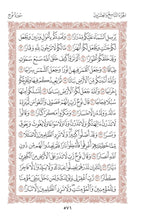 الجزء التاسع والعشرون سورة نوح
يُرْسِلِ السَّمَاءَ عَلَيْكُم مِّدْرَارًا ١١ وَيُمْدِدْكُم بِأَمْوَالٍ وَبَنِينَ وَيَجْعَل
لَّكُمْ جَنَّاتٍ وَيَجْعَل لَّكُمْ أَنْهَارًا ١٢ مَّا لَكُمْ لَا تَرْجُونَ لِلَّهِ وَقَارًا ١٣
وَقَدْ خَلَقَكُمْ أَطْوَارًا ١٤ أَلَمْ تَرَوْا كَيْفَ خَلَقَ اللَّهُ سَبْعَ سَمَاوَاتٍ
طِبَاقًا ١٥ وَجَعَلَ الْقَمَرَ فِيهِنَّ نُورًا وَجَعَلَ الشَّمْسَ سِرَاجًا ١٦
وَاللَّهُ أَنبَتَكُم مِّنَ الْأَرْضِ نَبَاتًا ١٧ ثُمَّ يُعِيدُكُمْ فِيهَا وَيُخْرِجُكُمْ
إِخْرَاجًا ١٨ وَاللَّهُ جَعَلَ لَكُمُ الْأَرْضَ بِسَاطًا ١٩ لِّتَسْلُكُوا مِنْهَا
سُبُلًا فِجَاجًا ٢٠ قَالَ نُوحٌ رَّبِّ إِنَّهُمْ عَصَوْنِي وَاتَّبَعُوا مَن لَّمْ
يَزِدْهُ مَالُهُ وَوَلَدُهُ إِلَّا خَسَارًا ٢١ وَمَكَرُوا مَكْرًا كُبَّارًا ٢٢ وَقَالُوا
لَا تَذَرُنَّ آلِهَتَكُمْ وَلَا تَذَرُنَّ وَدًّا وَلَا سُوَاعًا وَلَا يَغُوثَ وَيَعُوقَ
وَنَسْرًا ٢٣ وَقَدْ أَضَلُّوا كَثِيرًا وَلَا تَزِدِ الظَّالِمِينَ إِلَّا ضَلَالًا ٢٤
مِّمَّا خَطِيئَاتِهِمْ أُغْرِقُوا فَأُدْخِلُوا نَارًا فَلَمْ يَجِدُوا لَهُم مِّن دُونِ اللَّهِ
أَنصَارًا ٢٥ وَقَالَ نُوحٌ رَّبِّ لَا تَذَرْ عَلَى الْأَرْضِ مِنَ الْكَافِرِينَ دَيَّارًا ٢٦
إِنَّكَ إِن تَذَرْهُمْ يُضِلُّوا عِبَادَكَ وَلَا يَلِدُوا إِلَّا فَاجِرًا كَفَّارًا ٢٧
رَّبِّ اغْفِرْ لِي وَلِوَالِدَيَّ وَلِمَن دَخَلَ بَيْتِيَ مُؤْمِنًا
وَلِلْمُؤْمِنِينَ وَالْمُؤْمِنَاتِ وَلَا تَزِدِ الظَّالِمِينَ إِلَّا تَبَارًا ٢٨
٥٧١